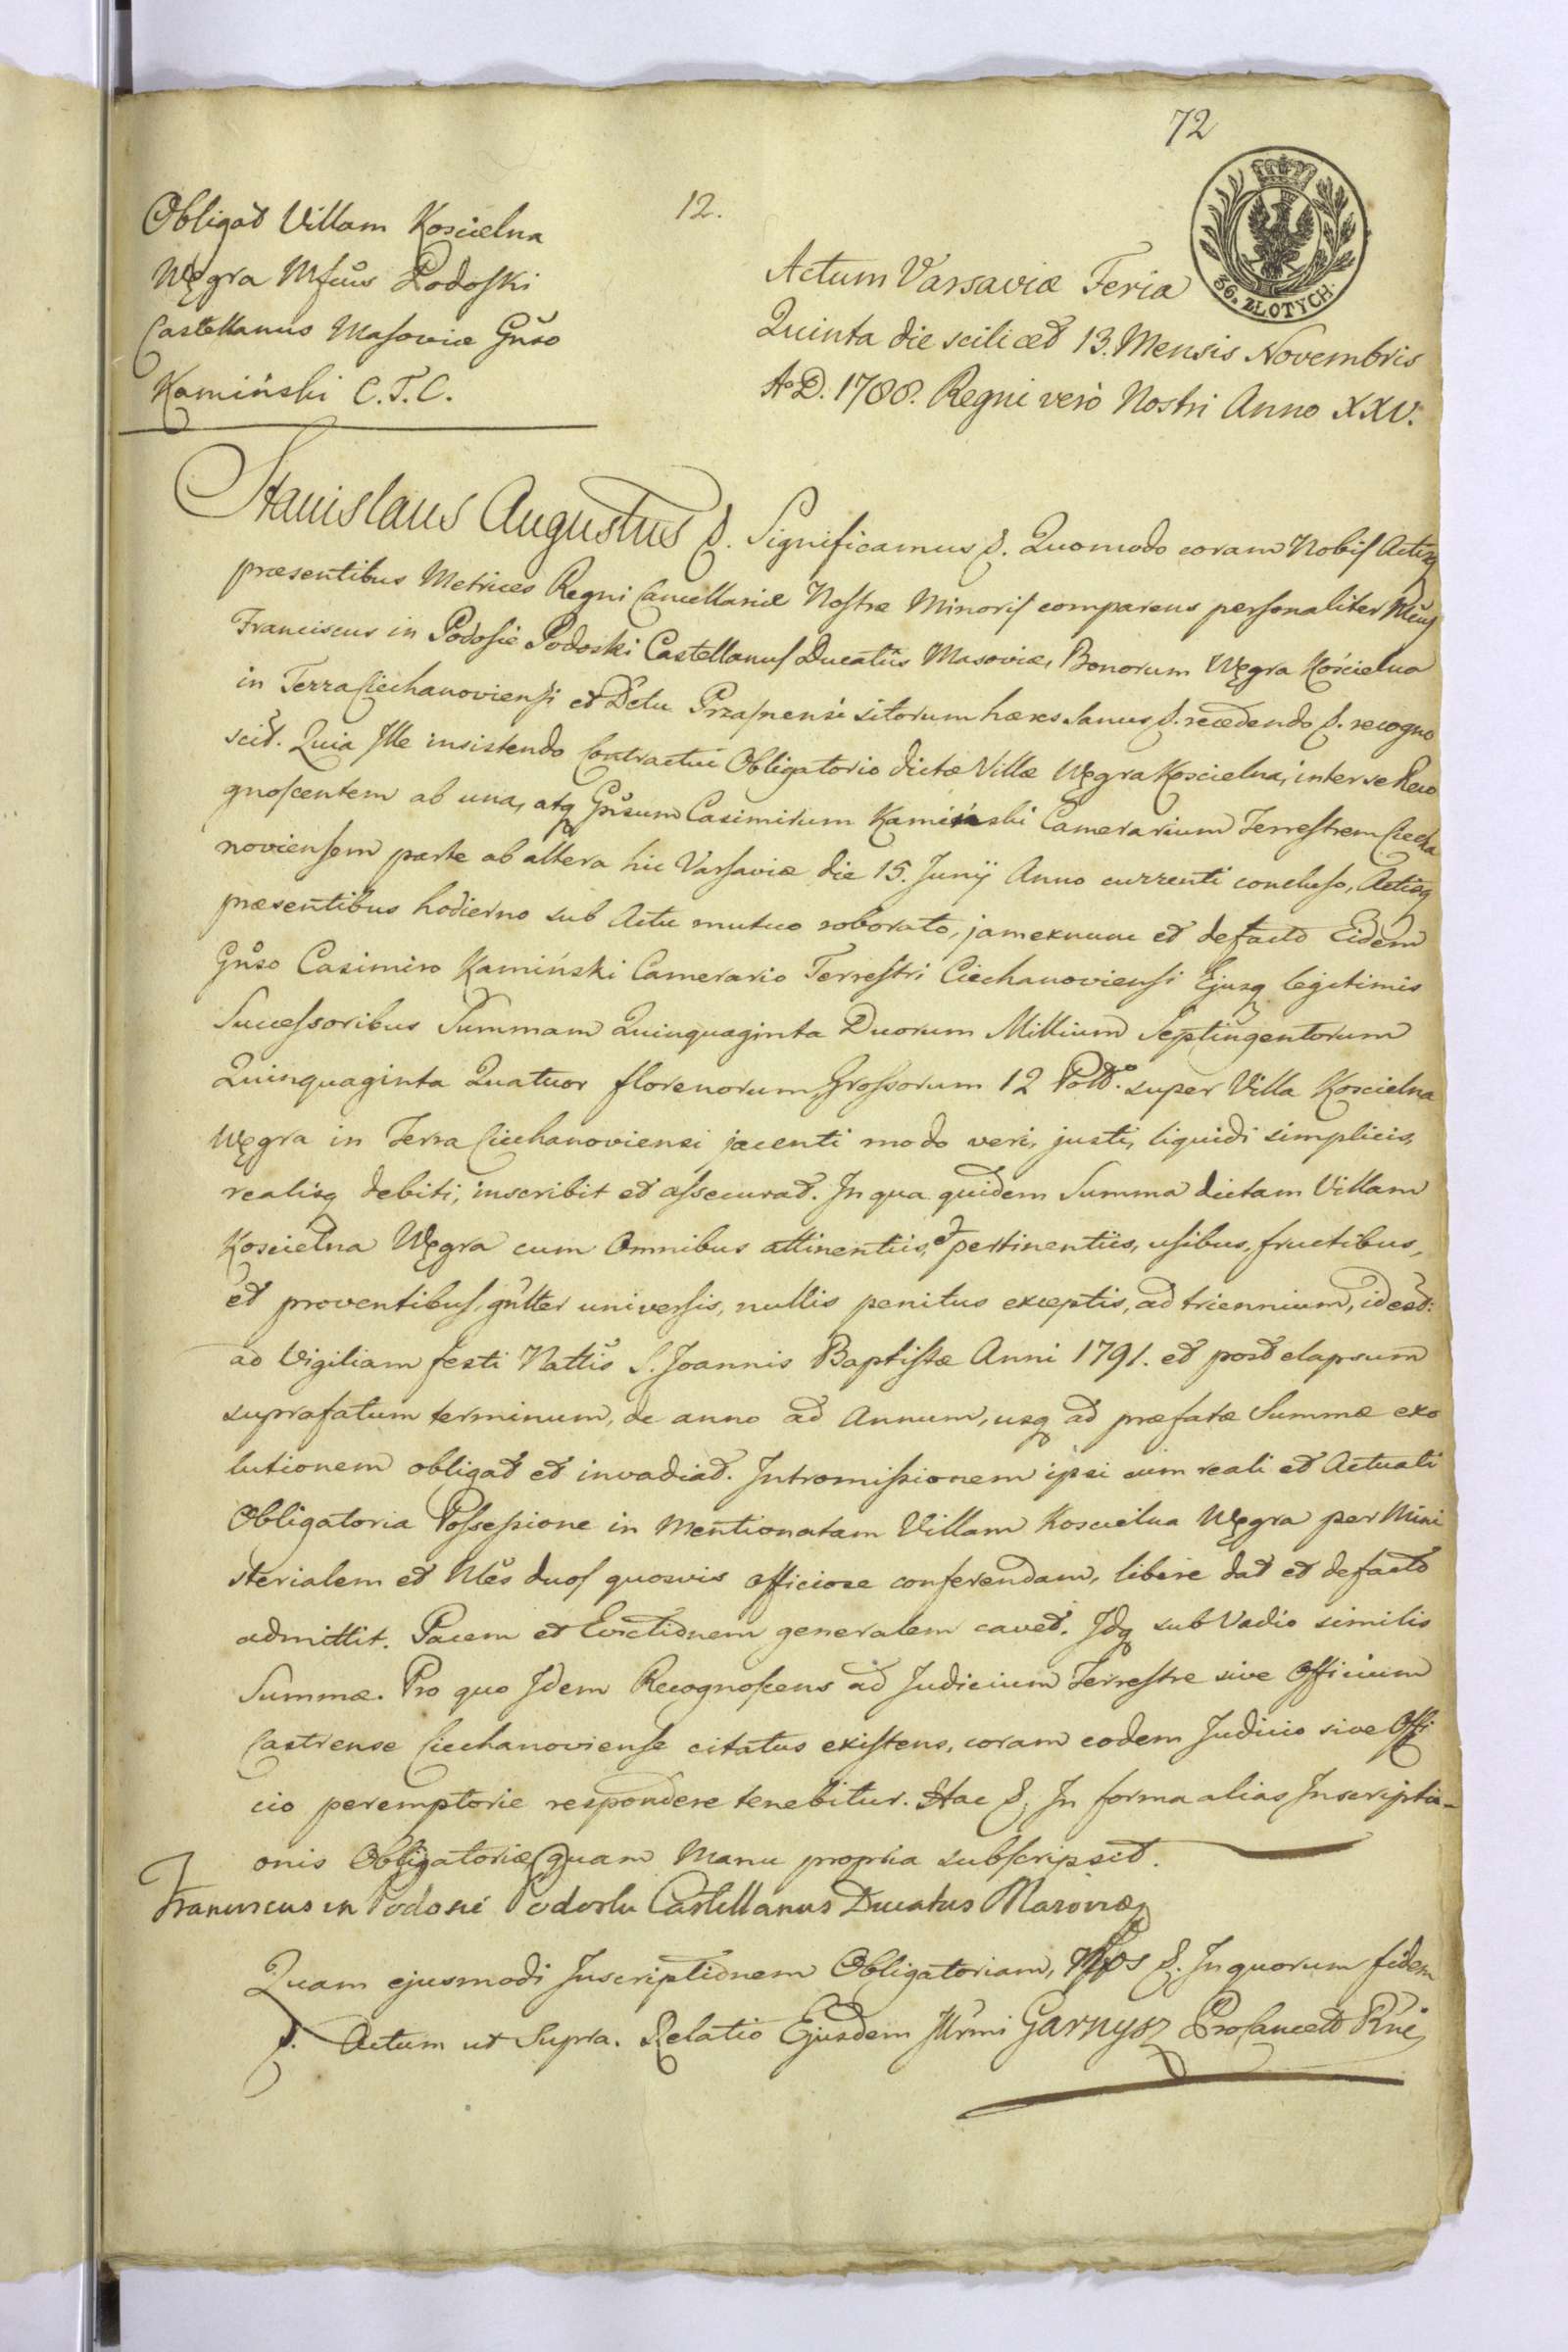 72
12.
Obligat Villam Koscielna
Węgra Mfcus Podoski
Castellanus Masoviæ Gnso
Kamiński C.T.C.
36. ZŁOTYCH.
Actum Varsaviæ Feria
Quinta die scilicet 13. Mensis Novembris
Ao D. 1788. Regni vero Nostri Anno XXV.
Stanislaus Augustus &. Significamus &. Quomodo coram Nobis Actisq
præsentibus Metrices Regni Cancellariæ Nostræ Minoris comparens personaliter
Franciscus in Podosie Podoski Castellanus Ducatûs Masoviæ, Bonorum Węgra Kościelna
in Terra Ciechanoviensi et Dctu Przasnensi sitorum hæres Sanus &. recedendo &. recogno
scit. Quia Ille insistendo Contractui Obligatorio dictæ Villæ Węgra Koscielna, inter se Reco
gnoscentem ab una, atq Gnsum Casimirum Kamiński Camerarium Terrestrem Ciecha
noviensem parte ab altera hic Varsaviæ die 15. Junij Anno currenti concluso, Actisq
præsentibus hodierno sub Actu mutuo roborato, jam exnunc et defacto Eidem
Gnso Casimiro Kamiński Camerario Terrestri Ciechanoviensi Ejusq legitimis
Successoribus Summam Quinquaginta Duorum Millium Septingentorum
Quinquaginta Quatuor florenorum Grossorum 12 Pold. super Villa Koscielna
Węgra in Terra Ciechanoviensi jacenti modo veri, justi, liquidi simplicis,
realisq debiti, inscribit et assecurat. In qua quidem Summa dictam Villam
Koscielna Węgra cum Omnibus attinentiis, et pertinentiis, usibus, fructibus,
et proventibus, gnlter universis, nullis penitus exceptis, ad triennium, id est:
ad Vigiliam festi Nattis S. Joannis Baptistæ Anni 1791. et post elapsum
suprafatum terminum, de anno ad Annum, usq ad præfatæ Summæ exo
lutionem obligat et invadiat. Intromissionem ipsi cum reali et Actuali
Obligatoria Possessione in Mentionatam Villam Koscielna Węgra per Mini
sterialem et Nles duos quosvis officiose conferendam, libere dat et defacto
admittit. Pacem et Evictionem generalem cavet. Idq sub Vadio similis
Summæ. Pro quo Idem Recognoscens ad Judicium Terrestre sive Officium
Castrense Ciechanoviense citatus existens, coram eodem Judicio sive Offi
cio peremptorie respondere tenebitur. Hac &. In forma alias Inscripti-
onis Obligatoriæ quam Manu propria subscripsit.
Franciscus in Podosie Podoski Castellanus Ducatus Masoviæ
Quam ejusmodi Inscriptionem Obligatoriam, Nos &. In quorum fidem
&. Actum ut Supra. Relatio Ejusdem Illrmi Garnysz Procancell Rni